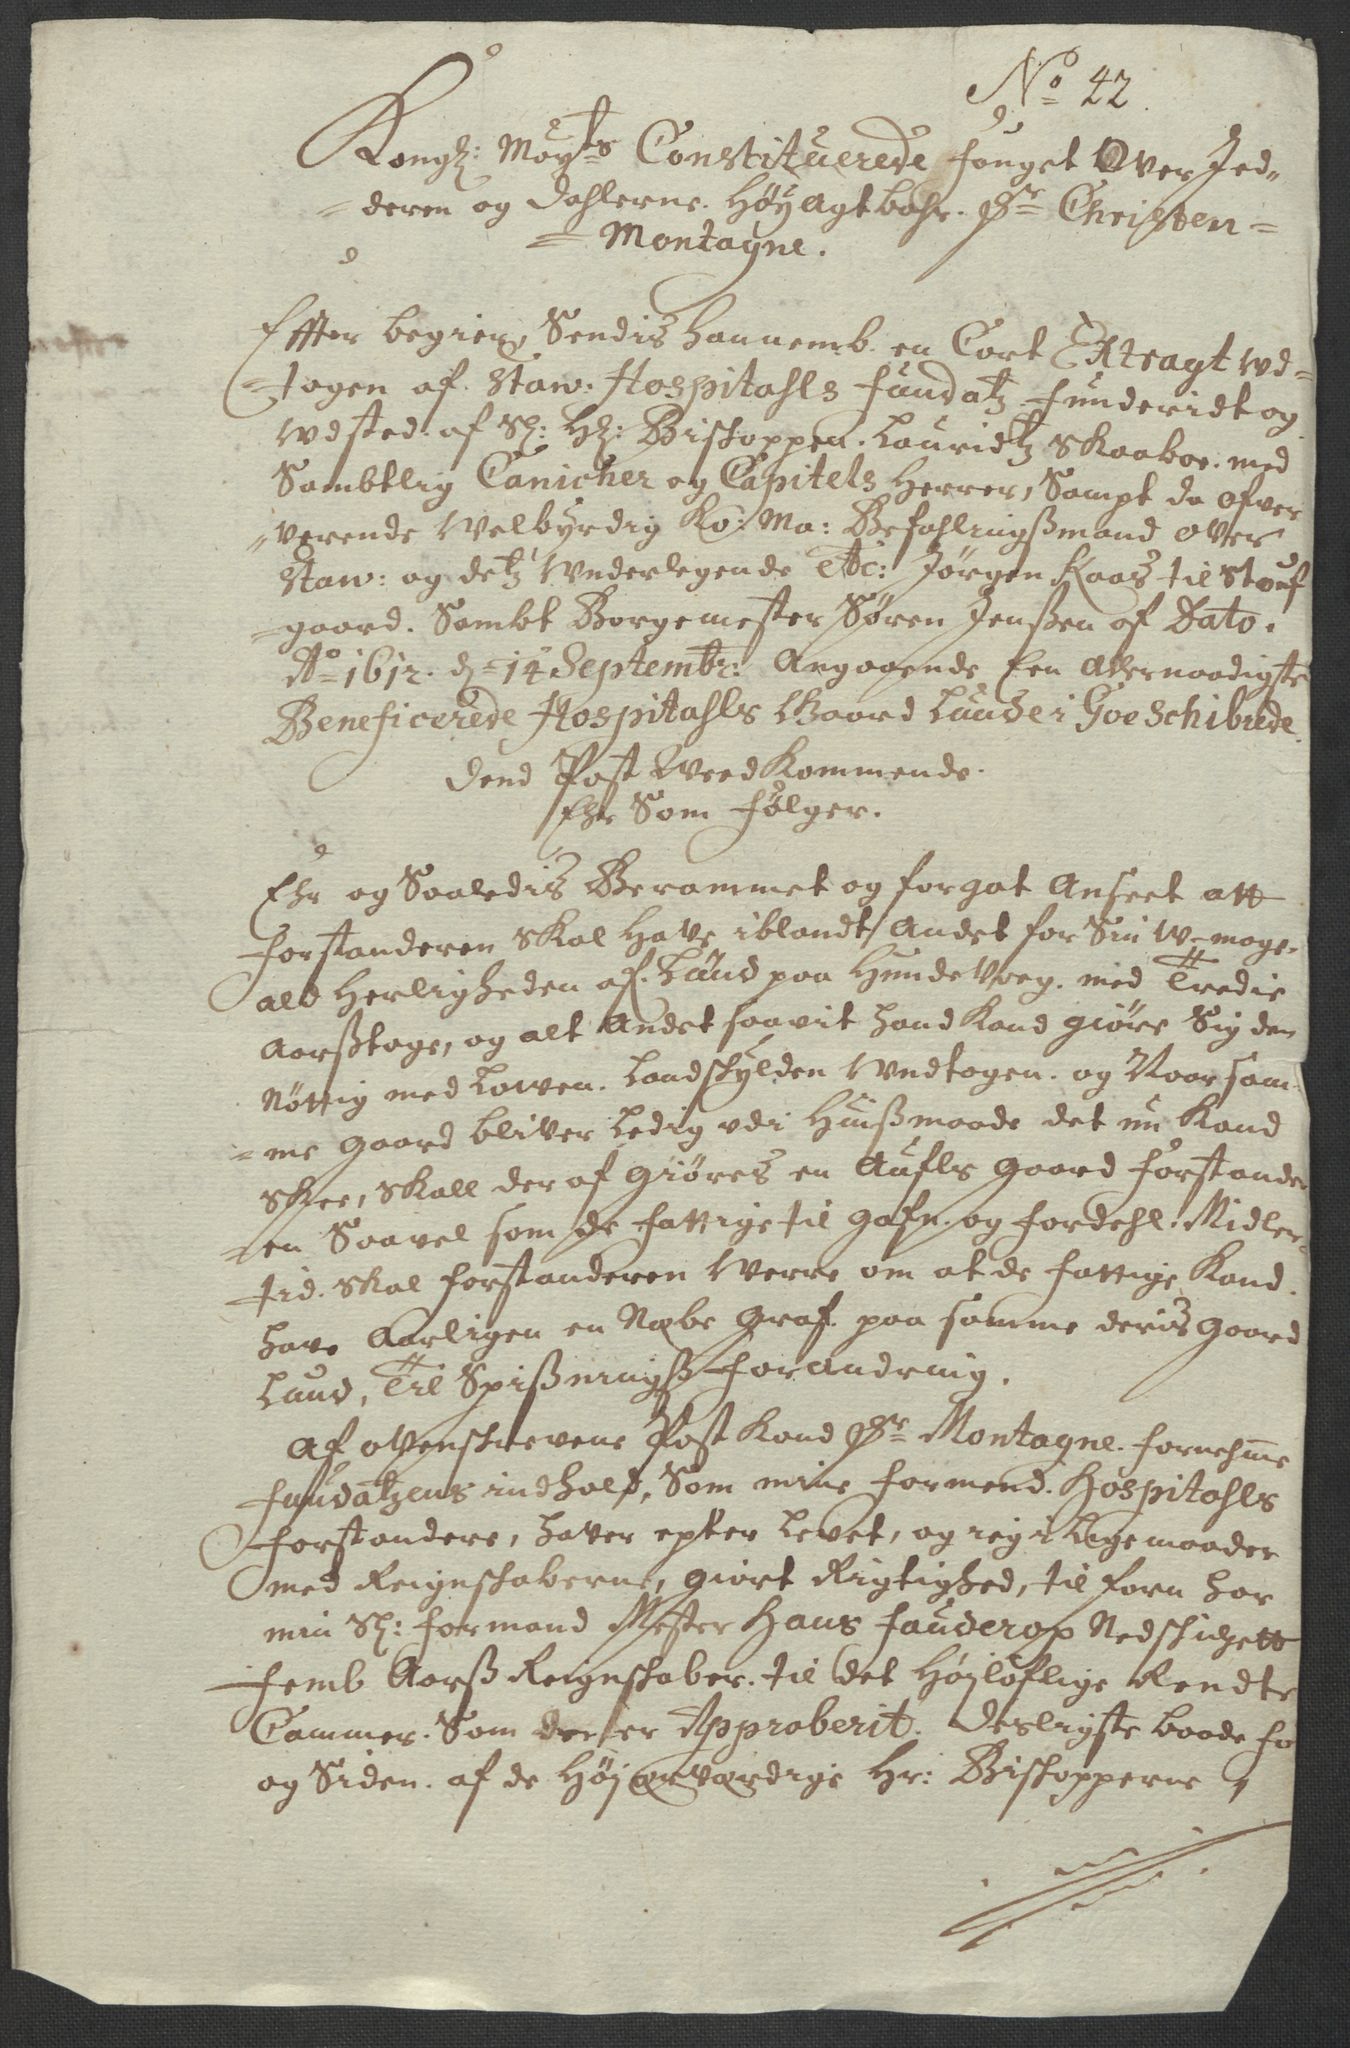 No 42
Kongl: Mayts Constituerede fouget Over Jed-
deren og Dahlerne. Høyagtbahr. Sr Christen
Montagne.
Effter begier, Sendis hannemb. en Cort Extragt wd-
tagen af. Staw: Hospitahls fundatz funderidt og
wdsted: af Sl: Hr: Bischoppen. Lauridtz Skaaboe. med
Sambtlig Canicher og Capitels Herrer, Sampt da ofver
verende Welbyrdig Ko: Ma: Befahlingsmand over
Staw: og detz Wnderlegende etc: Jørgen Kaas til Stouf
gaard. Sambt Borgemester Søren Jenßen af Dato.
Ao 1612. d: 14 Septembr: Angaaende een Allernaadigste
Beneficerede Hospitahls Gaard Lunde i Goeschibrede.
Dend Post Wed Kommende.
Ehr Som følger.
Ehr og Saaledis Berammet og forgat Anseet att
forstanderen skal Have iblandt Andet for Sin w-mage.
ald Herligheden af Lund paa Hundevoeg. med Tredie
Aarßtage, og alt Andet saavit hand kand giøre Sig den
Nöttig med Lowen. Landskylden Wndtagen. og Naar sam
me gaard bliver Ledig udi Huißmaade det nu Kand
Skee, skall der af giøres en Aufls gaard forstander
en Saavel som de fattige til gafn. og fordehl. Midler
tid. skal forstanderen Werre om at de fattige Kand.
have Aarligen en Nobe graf. paa samme deris gaard
Lund, Til Spißnings forandring.
Af ovenskrevene Post Kand Sr Montagne. fornehme
fundatzens indhold, Som mine formend. Hospitahls
forstandere, haver epter Levet, og ieg i Lige maader
med Reignskaberne, giort Rigtighed, til forn har
min Sl: formand Mester Hans Fauderop Nedschichett
femb Aarß Reignskaber. til det Højlöflige Rendte
Cammer. Som der er Approberit. Desligste baade fo
og Siden. af de Højærværdige Hr: Bischopperne